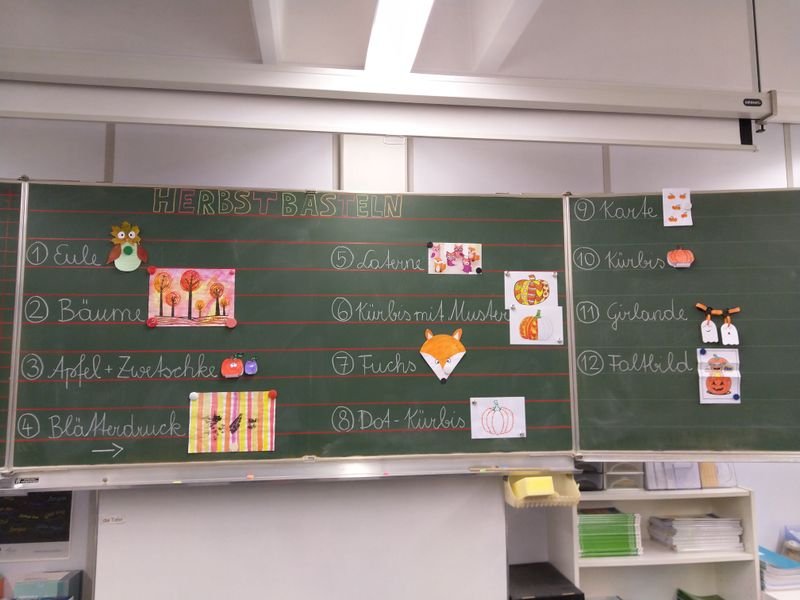 HERBSTBASTELN
① Eule
② Bäume
③ Apfel + Zwetschke
④ Blätterdruck
→
⑤ Laterne
⑥ Kürbis mit Muster
⑦ Fuchs
⑧ Dot-Kürbis
⑨ Karte
⑩ Kürbis
⑪ Girlande
⑫ Faltbild
die Tafel